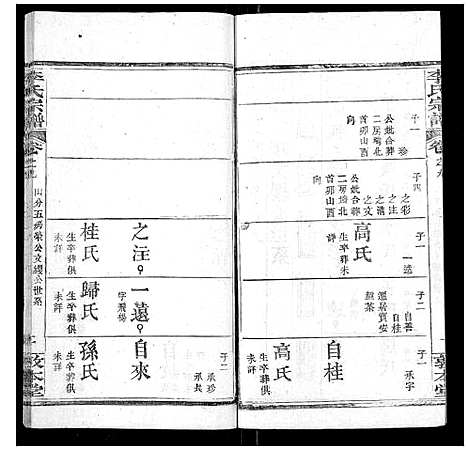 李氏宗譜
卷之九
敦本堂
子一
珍
公妣合葬
二房塆北
首卯山酉
向
子四
之彩
之文
之清
之文
公妣合葬
二房塆北
首卯山酉
向
子一
一遠
高氏
生卒葬未
詳
子二
自善
自桂
遷居貴安
子一
承宇
自桂
高氏
生卒葬俱
未詳
之注
桂氏
生卒葬俱
未詳
一遠
字飛揚
歸氏
生卒葬俱
未詳
子二
承珍
自來
孫氏
生卒葬俱
未詳
李氏宗譜
卷之九
四分五房榮公文纓公世系
敦本堂